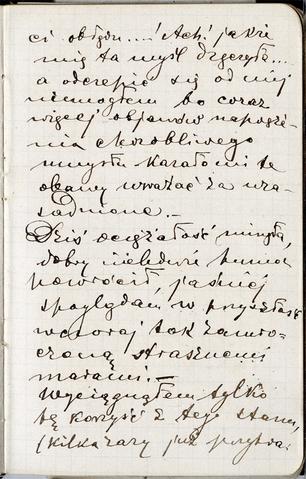 ci obłędu....! Ach! jakże
mię ta myśl dręczyła....
a odczepić się od niej
niemogłem bo coraz
więcej objawów
nia chorobliwego
umysłu kazało mi te
obawy uważać za uza-
sadnione.-
Dziś ociężałość minęła,
dobry humor
powrócił, jaśniej
spoglądam w przyszłość
wczoraj tak zamro-
czoną strasznemi
marami.-
Wyciągnąłem tylko
tę korzyść z tego stanu,
(kilka razy już